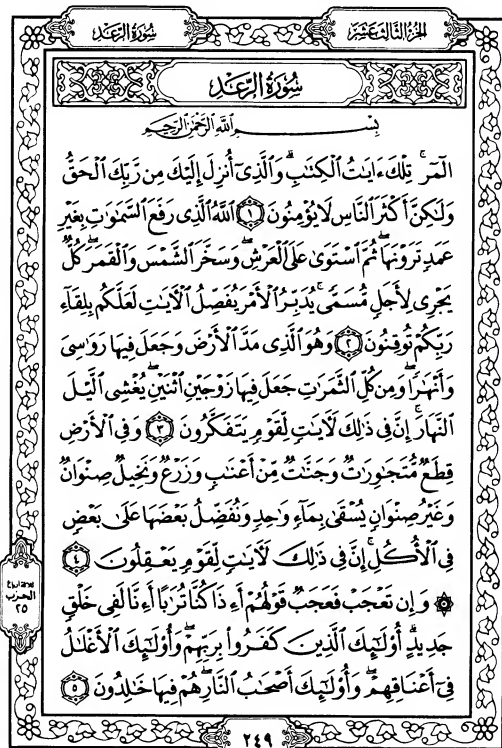 الجزء الثالث عشر
سورة الرعد
سورة الرعد
بسم الله الرحمن الرحيم
الٓمٓرۚ تِلْكَ ءَايَٰتُ ٱلْكِتَٰبِۗ وَٱلَّذِىٓ أُنزِلَ إِلَيْكَ مِن رَّبِّكَ ٱلْحَقُّ
وَلَٰكِنَّ أَكْثَرَ ٱلنَّاسِ لَا يُؤْمِنُونَ ١ ٱللَّهُ ٱلَّذِى رَفَعَ ٱلسَّمَٰوَٰتِ بِغَيْرِ
عَمَدٍ تَرَوْنَهَاۖ ثُمَّ ٱسْتَوَىٰ عَلَى ٱلْعَرْشِۖ وَسَخَّرَ ٱلشَّمْسَ وَٱلْقَمَرَۖ كُلٌّ
يَجْرِى لِأَجَلٍ مُّسَمًّىۚ يُدَبِّرُ ٱلْأَمْرَ يُفَصِّلُ ٱلْءَايَٰتِ لَعَلَّكُم بِلِقَآءِ
رَبِّكُمْ تُوقِنُونَ ٢ وَهُوَ ٱلَّذِى مَدَّ ٱلْأَرْضَ وَجَعَلَ فِيهَا رَوَٰسِىَ
وَأَنْهَٰرًاۖ وَمِن كُلِّ ٱلثَّمَرَٰتِ جَعَلَ فِيهَا زَوْجَيْنِ ٱثْنَيْنِۖ يُغْشِى ٱلَّيْلَ
ٱلنَّهَارَۚ إِنَّ فِى ذَٰلِكَ لَءَايَٰتٍ لِّقَوْمٍ يَتَفَكَّرُونَ ٣ وَفِى ٱلْأَرْضِ
قِطَعٌ مُّتَجَٰوِرَٰتٌ وَجَنَّٰتٌ مِّنْ أَعْنَٰبٍ وَزَرْعٌ وَنَخِيلٌ صِنْوَانٌ
وَغَيْرُ صِنْوَانٍ يُسْقَىٰ بِمَآءٍ وَٰحِدٍ وَنُفَضِّلُ بَعْضَهَا عَلَىٰ بَعْضٍ
فِى ٱلْأُكُلِۚ إِنَّ فِى ذَٰلِكَ لَءَايَٰتٍ لِّقَوْمٍ يَعْقِلُونَ ٤
۞ وَإِن تَعْجَبْ فَعَجَبٌ قَوْلُهُمْ أَءِذَا كُنَّا تُرَٰبًا أَءِنَّا لَفِى خَلْقٍ
جَدِيدٍۗ أُو۟لَٰٓئِكَ ٱلَّذِينَ كَفَرُوا۟ بِرَبِّهِمْۖ وَأُو۟لَٰٓئِكَ ٱلْأَغْلَٰلُ
فِىٓ أَعْنَاقِهِمْۖ وَأُو۟لَٰٓئِكَ أَصْحَٰبُ ٱلنَّارِۖ هُمْ فِيهَا خَٰلِدُونَ ٥
ثلاثة أرباع
الحزب
٢٥
٢٤٩